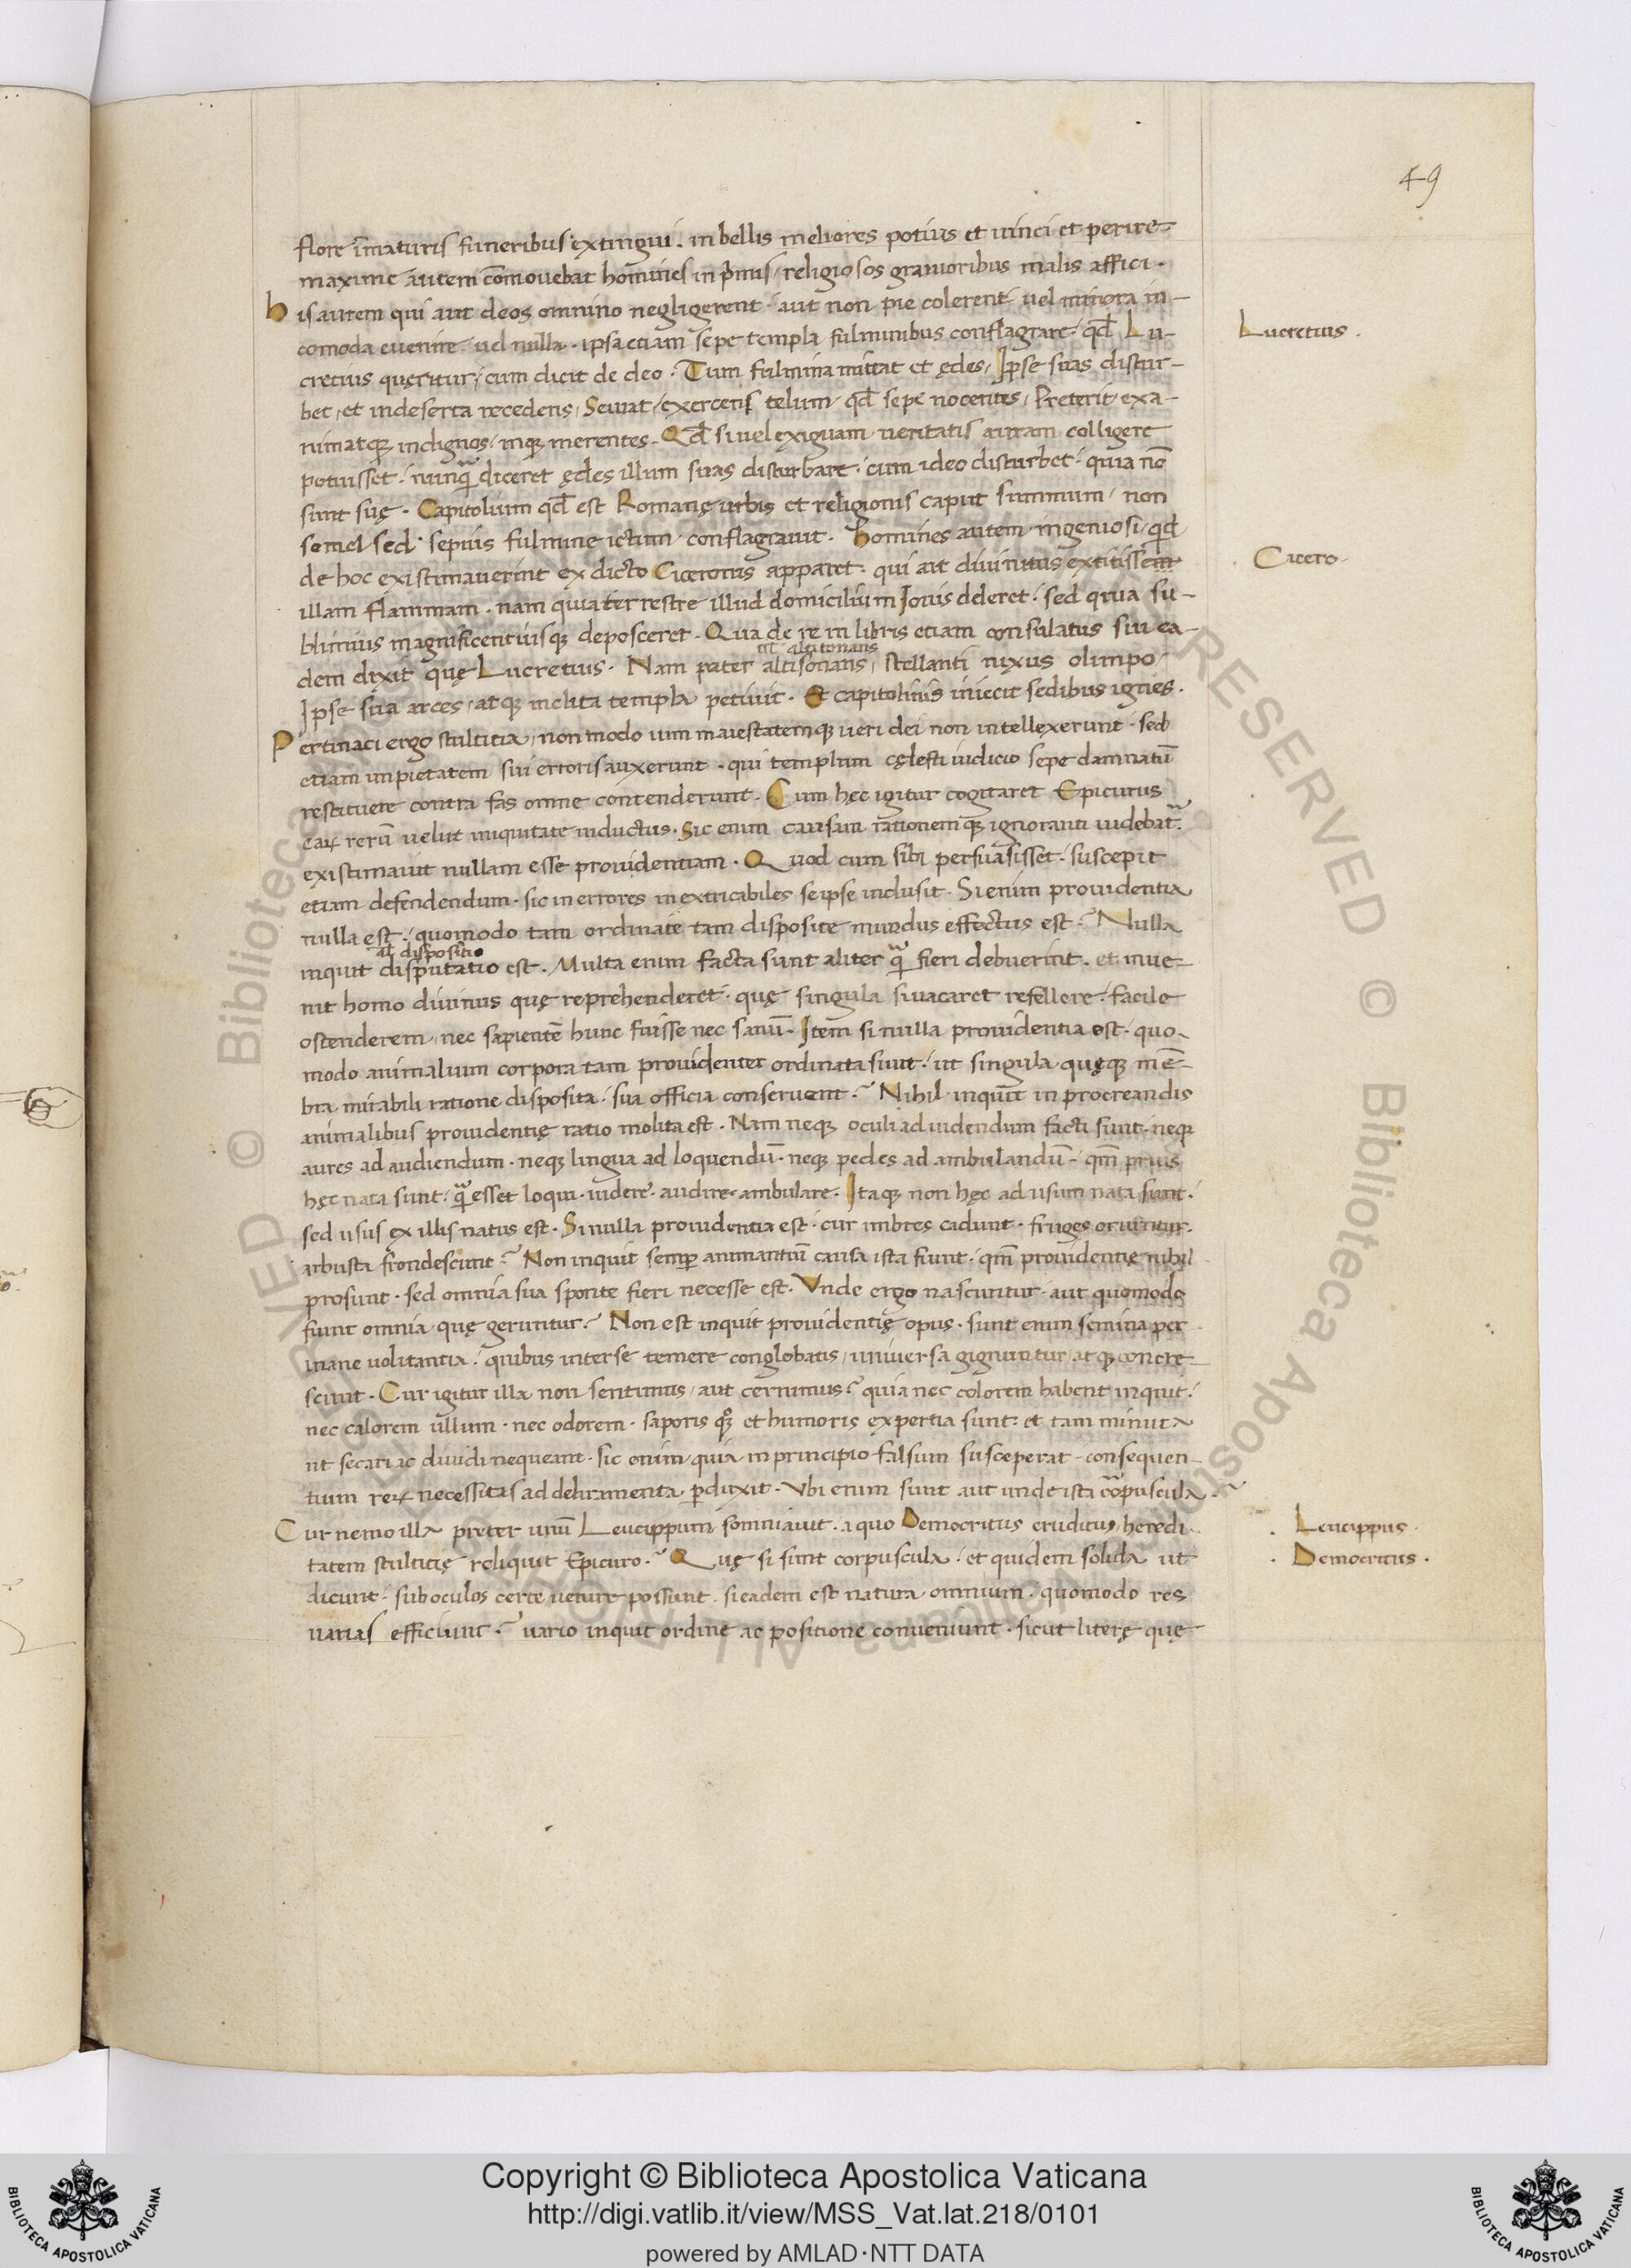 49
flore īmaturis funeribus extingui. in bellis meliores potius et uinci et perire.
maxime autem cōmouebat homines in pͥmis / religiosos grauioribus malis affici.
his autem qui aut deos omnino negligerent. aut non pie colerent / uel minora in-
comoda euenire / uel nulla. ipsa etiam sepe templa fulminibus conflagrare. qđ Lu-
Lucretius.
cretius queritur / cum dicit de deo. Tum fulmina mittat et ędes / Ipse suas distur-
bet / et in deserta recedens / Seuiat / exercens telum / qđ sepe nocentes / Preterit / exa-
nimatqꝫ indignos / inqꝫ merentes. Qđ si uel exiguam ueritatis auram colligere
potuisset. nunqͣ diceret ędes illum suas disturbare. cum ideo disturbet. quia nō
sunt suę. Capitolium qđ est Romanę urbis et religionis caput summum / non
semel sed sepius fulmine ictum conflagrauit. Homines autem ingeniosi / qd
de hoc existimauerint ex dicto Ciceronis apparet. qui ait diuinitus extitisse
Cicero.
illam flammam. nam quia terrestre illud domicilium Iouis dderet. sed qua su-
blimius magnificentiusqꝫ deposceret. Qua de re in libris etiam consulatus sui ea-
al' altitonans
dem dixit quę Lucretius. Nam pater altisonans / stellanti nixus olimpo /
Ipse sua arces / atqꝫ inclita templa petiuit. Et capitolinis iniecit sedibus ignes.
Pertinaci ergo stultitia / non modo uim maiestatemqꝫ ueri dei non intellexerunt. sed
etiam impietatem sui erroris auxerunt. qui templum cęlesti iudicio sepe damnatū
restituere contra fas omne contenderunt. Cum hęc igitur cogitaret Epicurus
eaꝝ rerū uelut iniquitate inductus. Sic enim causam rationemqꝫ ignoranti uidebat᷑.
existimauit nullam esse prouidentiam. Quod cum sibi persuasisset. suscepit
etiam defendendum. sic in errores inextricabiles se ipse inclusit. Si enim prouidentia
nulla est. quomodo tam ordinate tam disposite mundus effectus est? Nulla
al' dispositio
inquit disputatio est. Multa enim facta sunt aliter qͣ fieri debuerint. et inue-
nit homo diuinus quę reprehenderet. quę singula si uacaret refellere. facile
ostenderem / nec sapientē hunc fuisse nec sanū. Item si nulla prouidentia est. quo-
modo animalium corpora tam prouidenter ordinata sunt. ut singula quęqꝫ mē-
bra mirabili ratione disposita. sua officia conseruent? Nihil inquit in procreandis
animalibus prouidentię ratio molita est. Nam neqꝫ oculi ad uidendum facti sunt. neqꝫ
aures ad audiendum. neqꝫ lingua ad loquendū. neqꝫ pedes ad ambulandū. qm̄ prius
hęc nata sunt. qͣ esset loqui. uidere. audire. ambulare. Itaqꝫ non hęc ad usum nata sunt.
sed usus ex illis natus est. Si nulla prouidentia est. cur imbres cadunt. fruges oriuntur.
arbusta frondescunt? Non inquit semꝑ animantiū causa ista fiunt. qm̄ prouidentię nihil
prosunt. sed omnia sua sponte fieri necesse est. Vnde ergo nascuntur. aut quomodo
fiunt omnia quę geruntur? Non est inquit prouidentię opus. sunt enim semina per
inane uolitantia. quibus inter se temere conglobatis / uniuersa gignuntur / atqꝫ concre-
scunt. Cur igitur illa non sentimus / aut cernimus? quia nec colorem habent inquit.
nec calorem ullum. nec odorem. saporis qꝫ et humoris expertia sunt. et tam minuta
ut secari ac diuidi nequeant. sic enim quia in principio falsum susceperat. consequen-
tium reꝝ necessitas ad deliramenta ꝑduxit. Vbi enim sunt aut unde ista corpuscula.
Cur nemo illa preter unū Leucippum somniauit. a quo Democritus eruditus / heredi-
Leucippus.
tatem stultitię reliquit Epicuro? Quę si sunt corpuscula. et quidem solida ut
Democritus.
dicunt. sub oculos certe uenire possunt. si eadem est natura omnium. quomodo res
uarias efficiunt? uario inquit ordine ac positione conueniunt. sicut literę quę
Copyright © Biblioteca Apostolica Vaticana
http://digi.vatlib.it/view/MSS_Vat.lat.218/0101
powered by AMLAD·NTT DATA